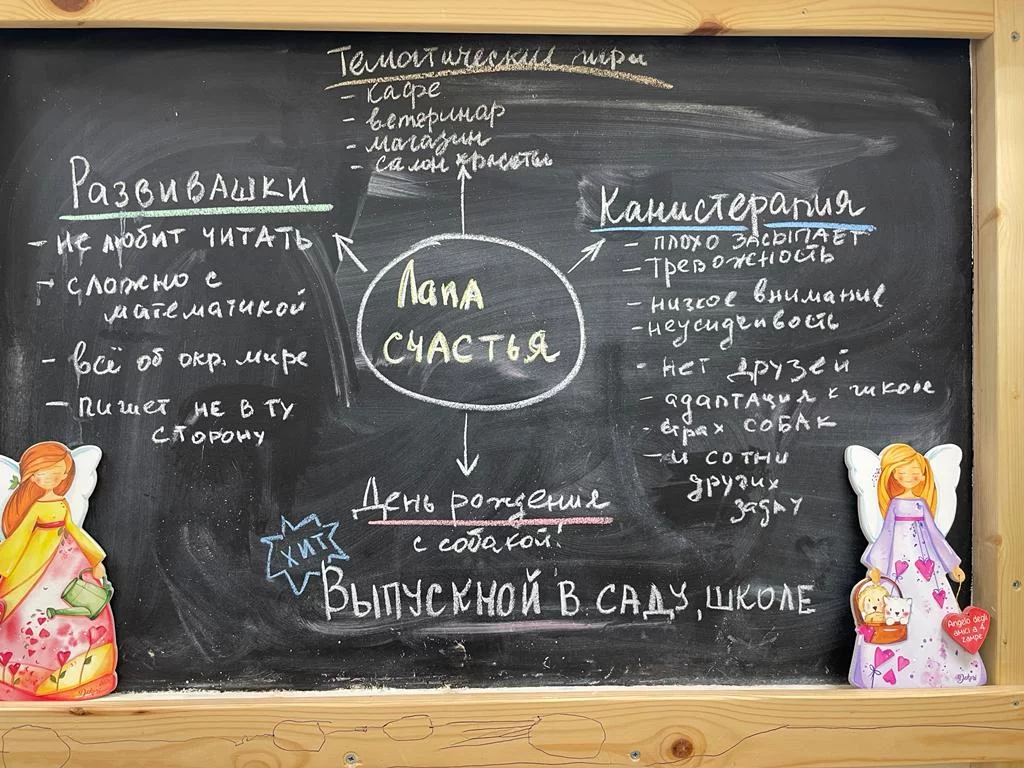 Тематические игры
- кафе
- ветеринар
- магазин
- салон красоты
Развивашки
- не любит читать
- сложно с
математикой
- всё об окр. мире
- пишет не в ту
сторону
Лапа
счастья
Канистерапия
- плохо засыпает
- тревожность
- низкое внимание
- неусидчивость
- нет друзей
- адаптация к школе
- страх собак
- и сотни
других
задач
День рождения
с собакой!
ХИТ
Выпускной в саду, школе
Angelo degli
amici a 4
zampe